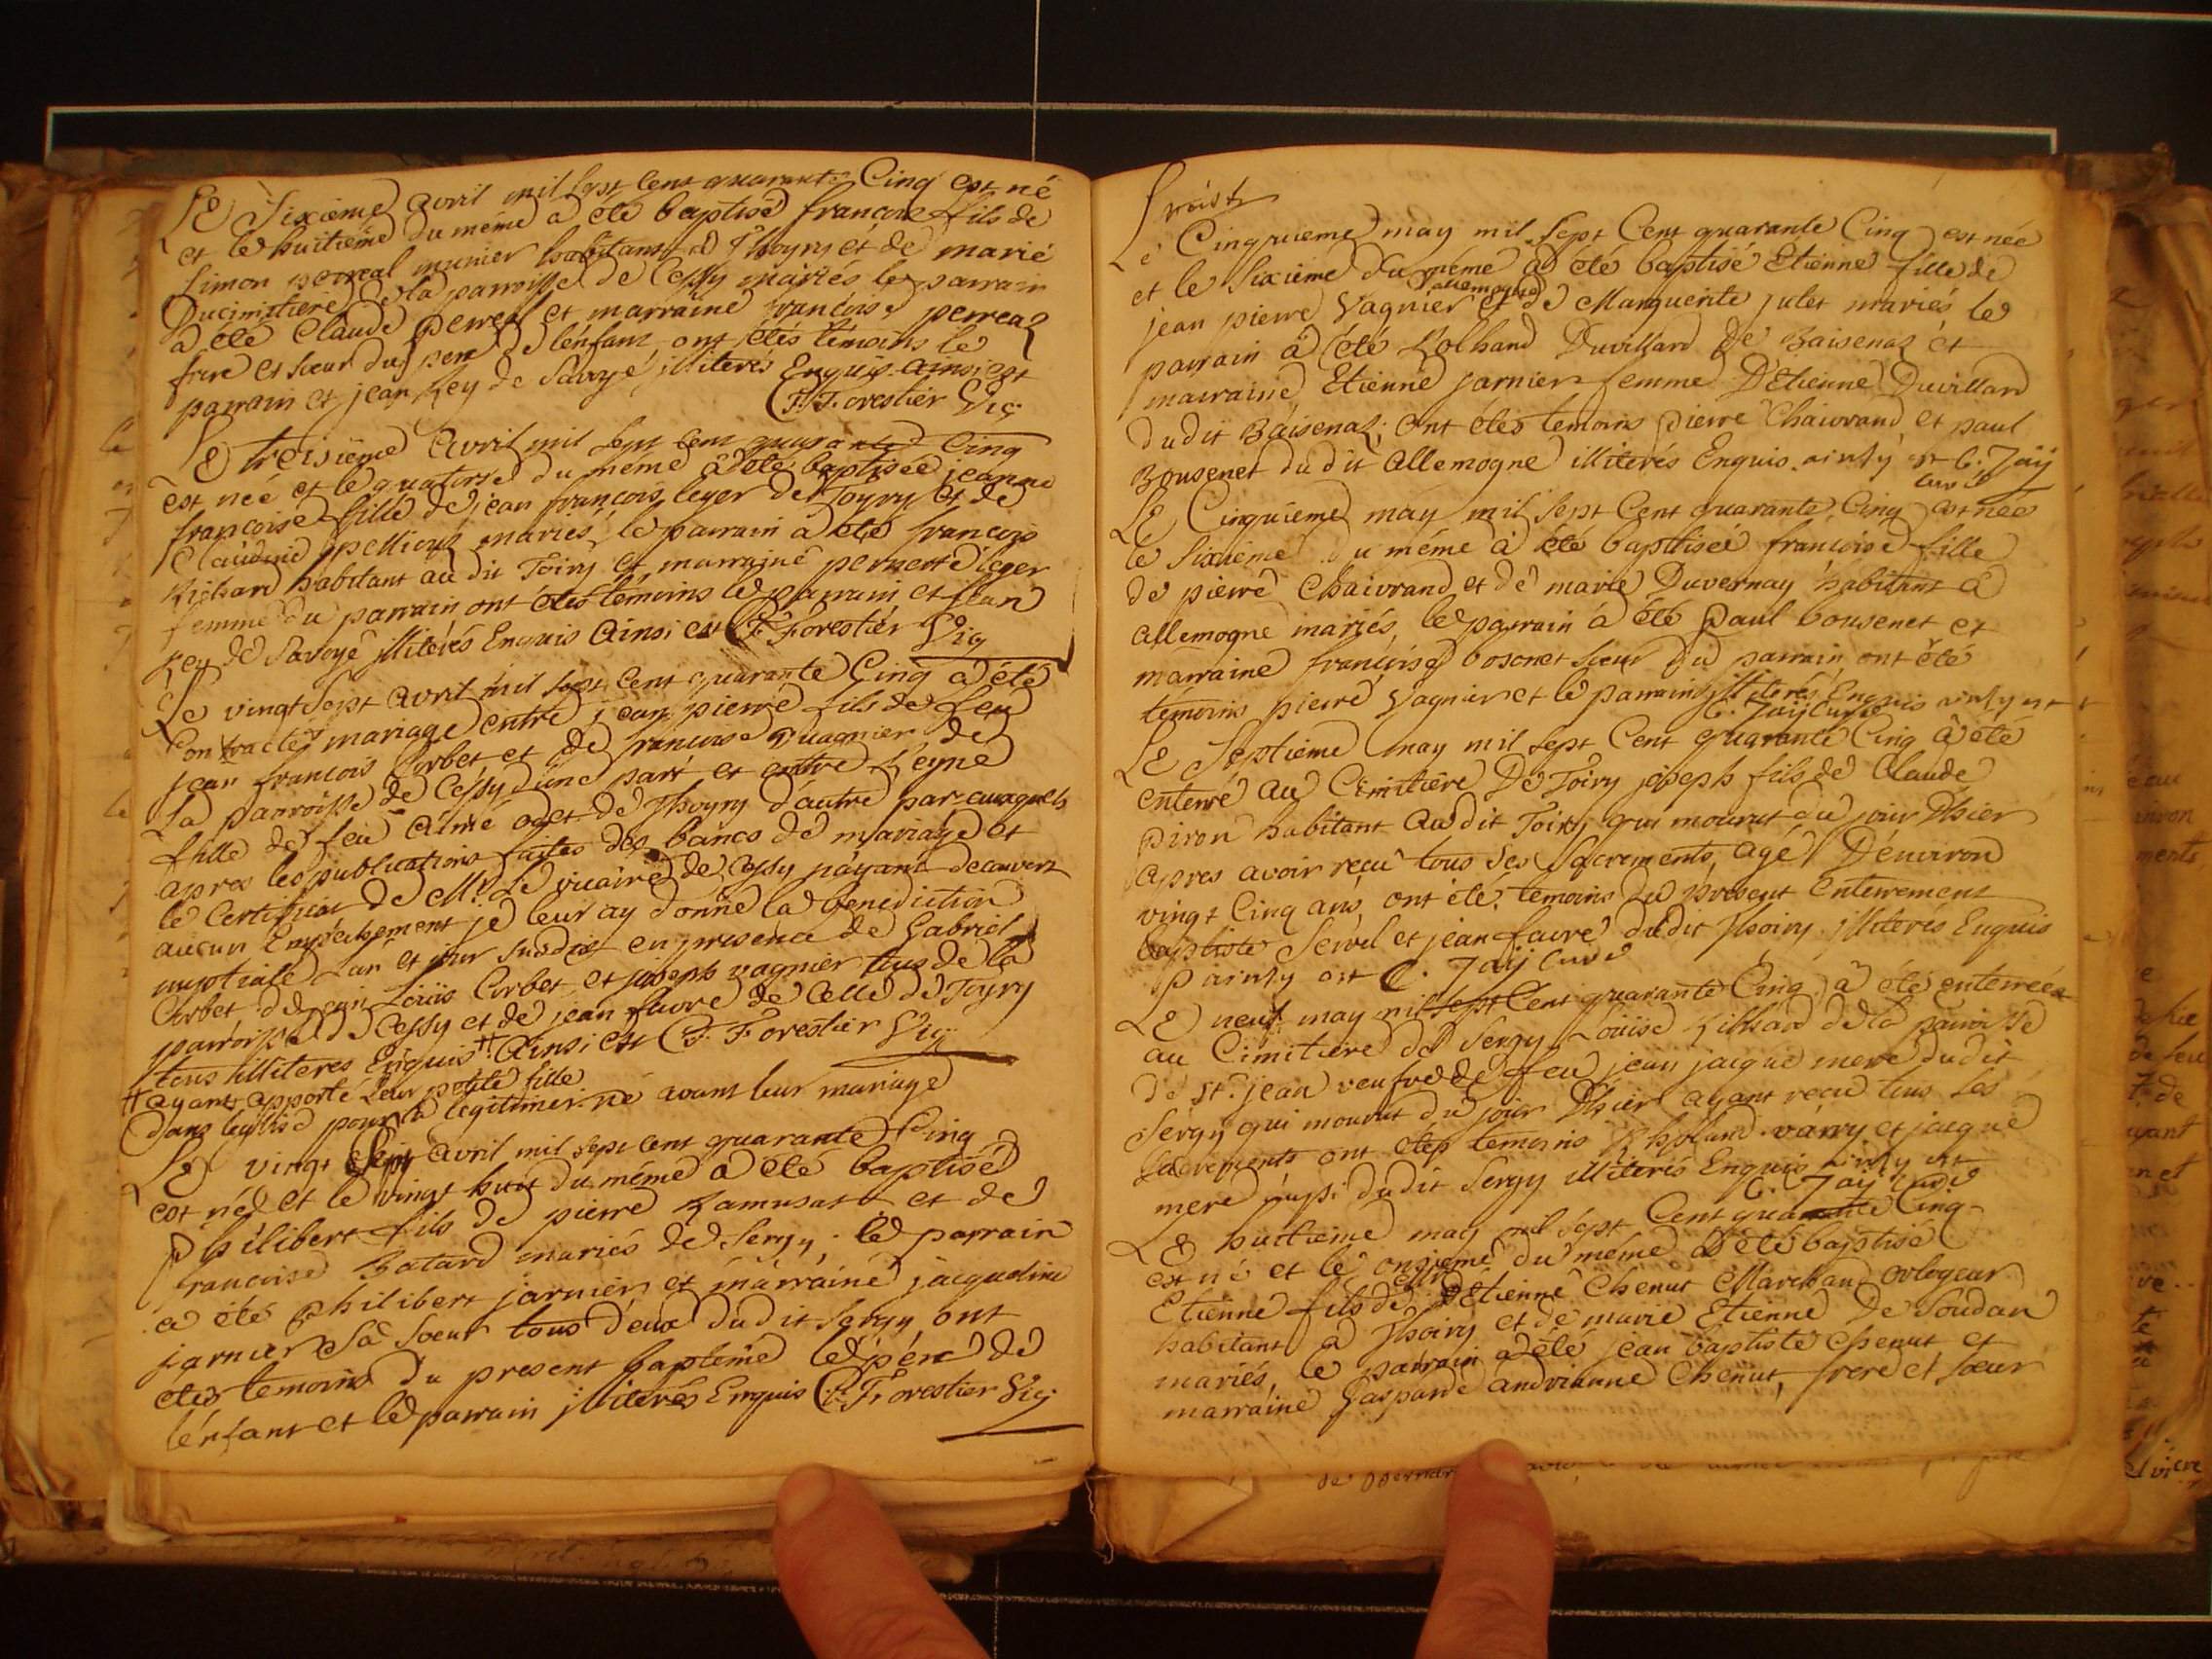 Le Sixiéme avril mil sept cent quarante Cinq est né
et le huitiéme du méme a été baptisé françois fils de
Simon perreal munier habitant a Thoyry et de marie
Ducimitiere de la parroisse de Cessy mariés le parrain
a été Claude perreal et marraine francoise perreal
frere et sœur du pere de lénfant ont étés témoins le
parrain et jean Rey de Savoyé illiterés Enquis Ainsi est
F. Forestier Vic
Le treisiéme avril mil sept cent quarante Cinq
est née et le quatorse du méme a été baptisée jeanne
françoise fille de jean françois leger de Toyry et de
Claudine pelliouz mariés, le parrain a été francois
Richard habitant au dit Toiry et marraine pernette léger
femme du parrain ont étés témoins le parrain et jean
Rey de Savoyé illiterés Enquis Ainsi est F. Forestier Vic
Le vingt Sept avril mil sept cent quarante Cinq a été
Contracté mariage entre jean pierre fils de feu
jean francois Corbet et de francoise Vuagnier de
la parroisse de Cessy dune part et entre
fille de feu Aimé oget de Thoyry d'autre part auxquels
apres les publications faites des bancs de mariage et
le Certificat de Mr. Le vicaire de Cessy n'ayant decouvert
aucun Empéchement je leur ay donné la benediction
nuptiale L'an et jour susdit en presence de Gabriel
Corbet de jean Loüis Corbet et joseph vagnier tous de la
parroisse de Cessy et de jean favre de Celle de Toyry
tous illiteres Enquis # Ainsi est F. Forestier Vic
# ayant apporté Leur petite fille
dans leglise pour la legitimer né avant leur mariage
Le vingt Sept avril mil sept cent quarante Cinq
est né et le vingt huit du méme a été baptisé
philibert fils de pierre Lamusat et de
francoise Batard mariés de Sergy. le parrain
a été philibert jarnier et marraine jacqueline
jarnier Sa Soeur tous deux dudit Sergy ont
étés temoins du present baptéme le pére de
lénfant et le parrain illiterés Enquis F. Forestier Vic
Le Cinquieme may mil Sept Cent quarante Cinq est née
et le Sixieme du méme a été baptisé Etienne fille de
allemogne
jean pierre Vagnier et de Marguerite julet mariés le
parrain a été Rolhand Duvillard de Baisenaz et
marraine Etienne jarnier femme D'Etienne Duvillard
dudit Baisenaz; ont étés temoins pierre Chaivrand et paul
Bousenet du dit allemogne illiterés Enquis. ainsy est C. Jaÿ
Curé
Le Cinquiéme may mil Sept Cent quarante Cinq est née
le Sixiéme du méme a été baptisée francoise fille
de pierre Chaivrand et de marie Duvernay habitant a
allemogne mariés, le parrain a été paul bousenet et
marraine francoise bosonet Sœur du parrain ont été
témoins pierre Vagnier et le parrain illiterés Enquis ainsy est
C. Jaÿ Curé
Le Septieme may mil sept Cent quarante Cinq a été
enterré au Cimitiere De Toiry joseph fils de Claude
piron habitant audit Toiry qui mourut du jour Dhier
apres avoir reçu tous Ses Sacrements, agé D'énviron
vingt Cinq ans, ont été témoins du present Enterrement
baptiste Servel et jean favre dudit Thoiry illiterés Enquis
ainsy est C. Jaÿ Curé
Le neuf may mil sept Cent quarante Cinq a été enterrée
au Cimitiere de Sergy Loüise Richard de la parroisse
de St. jean veufve de feu jean jacque mere dudit
Sergy qui mourut du jour Dhier ayant recu tous les
Sacrements ont étés temoins Rholland vàrry et jacque
mere aussi dudit Sergy illiterés Enquis ainsy est
C. Jaÿ Curé
Le huitieme may mil Sept Cent quarante Cinq
est né et le onsieme du méme a été baptisé
Etienne fils de D'Etienne Chenut Marchand orlogeur
habitant a Thoiry et de marie Etienne De Soudan
mariés, le parrain a été jean baptiste Chenut et
marraine Gasparde andrianne Chenut, frere et sœur